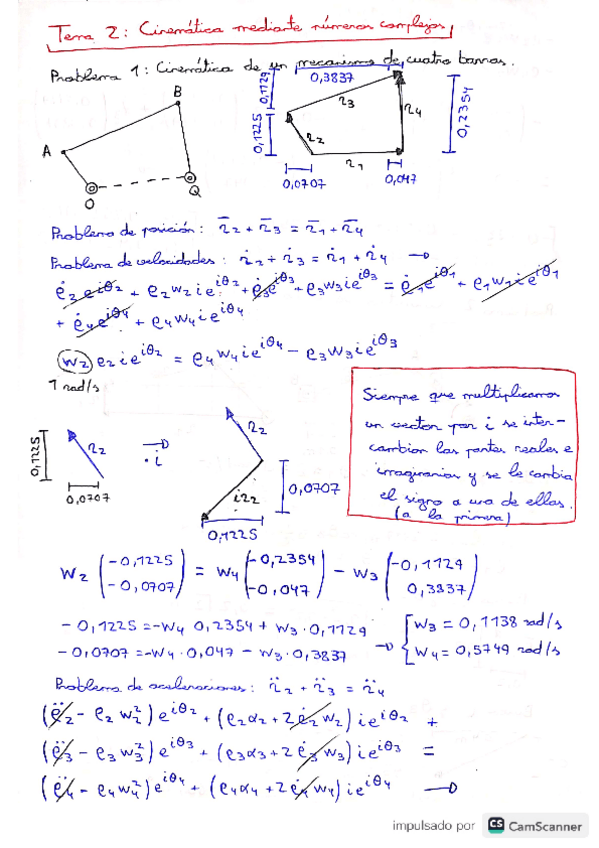 Tema 2: Cinemática mediante números complejos
Problema 1: Cinemática de un mecanismo de cuatro barras.
A
B
O
Q
0,1129
0,3837
0,1225
r3
r2
r4
r1
0,2354
0,0707
0,047
Problema de posición: r̄2 + r̄3 = r̄1 + r̄4
Problema de velocidades: ṙ2 + ṙ3 = ṙ1 + ṙ4 →
ρ̇2 e^iθ2 + ρ2 w2 i e^iθ2 + ρ̇3 e^iθ3 + ρ3 w3 i e^iθ3 = ρ̇1 e^iθ1 + ρ1 w1 i e^iθ1
+ ρ̇4 e^iθ4 + ρ4 w4 i e^iθ4
w2 ρ2 i e^iθ2 = ρ4 w4 i e^iθ4 − ρ3 w3 i e^iθ3
1 rad/s
Siempre que multiplicamos
un vector por i se inter-
cambian las partes reales e
imaginarias y se le cambia
el signo a una de ellas.
(a la primera)
0,1225
r2
0,0707
· i
r2
i r2
0,0707
0,1225
w2 (−0,1225 −0,0707) = w4 (−0,2354 −0,047) − w3 (−0,1129 0,3837)
−0,1225 = −w4 0,2354 + w3 · 0,1129
−0,0707 = −w4 · 0,047 − w3 · 0,3837 → { w3 = 0,1138 rad/s
w4 = 0,5749 rad/s
Problema de aceleraciones: r̈2 + r̈3 = r̈4
(ρ̈2 − ρ2 w2²) e^iθ2 + (ρ2 α2 + 2 ρ̇2 w2) i e^iθ2 +
(ρ̈3 − ρ3 w3²) e^iθ3 + (ρ3 α3 + 2 ρ̇3 w3) i e^iθ3 =
(ρ̈4 − ρ4 w4²) e^iθ4 + (ρ4 α4 + 2 ρ̇4 w4) i e^iθ4 →
impulsado por CS CamScanner